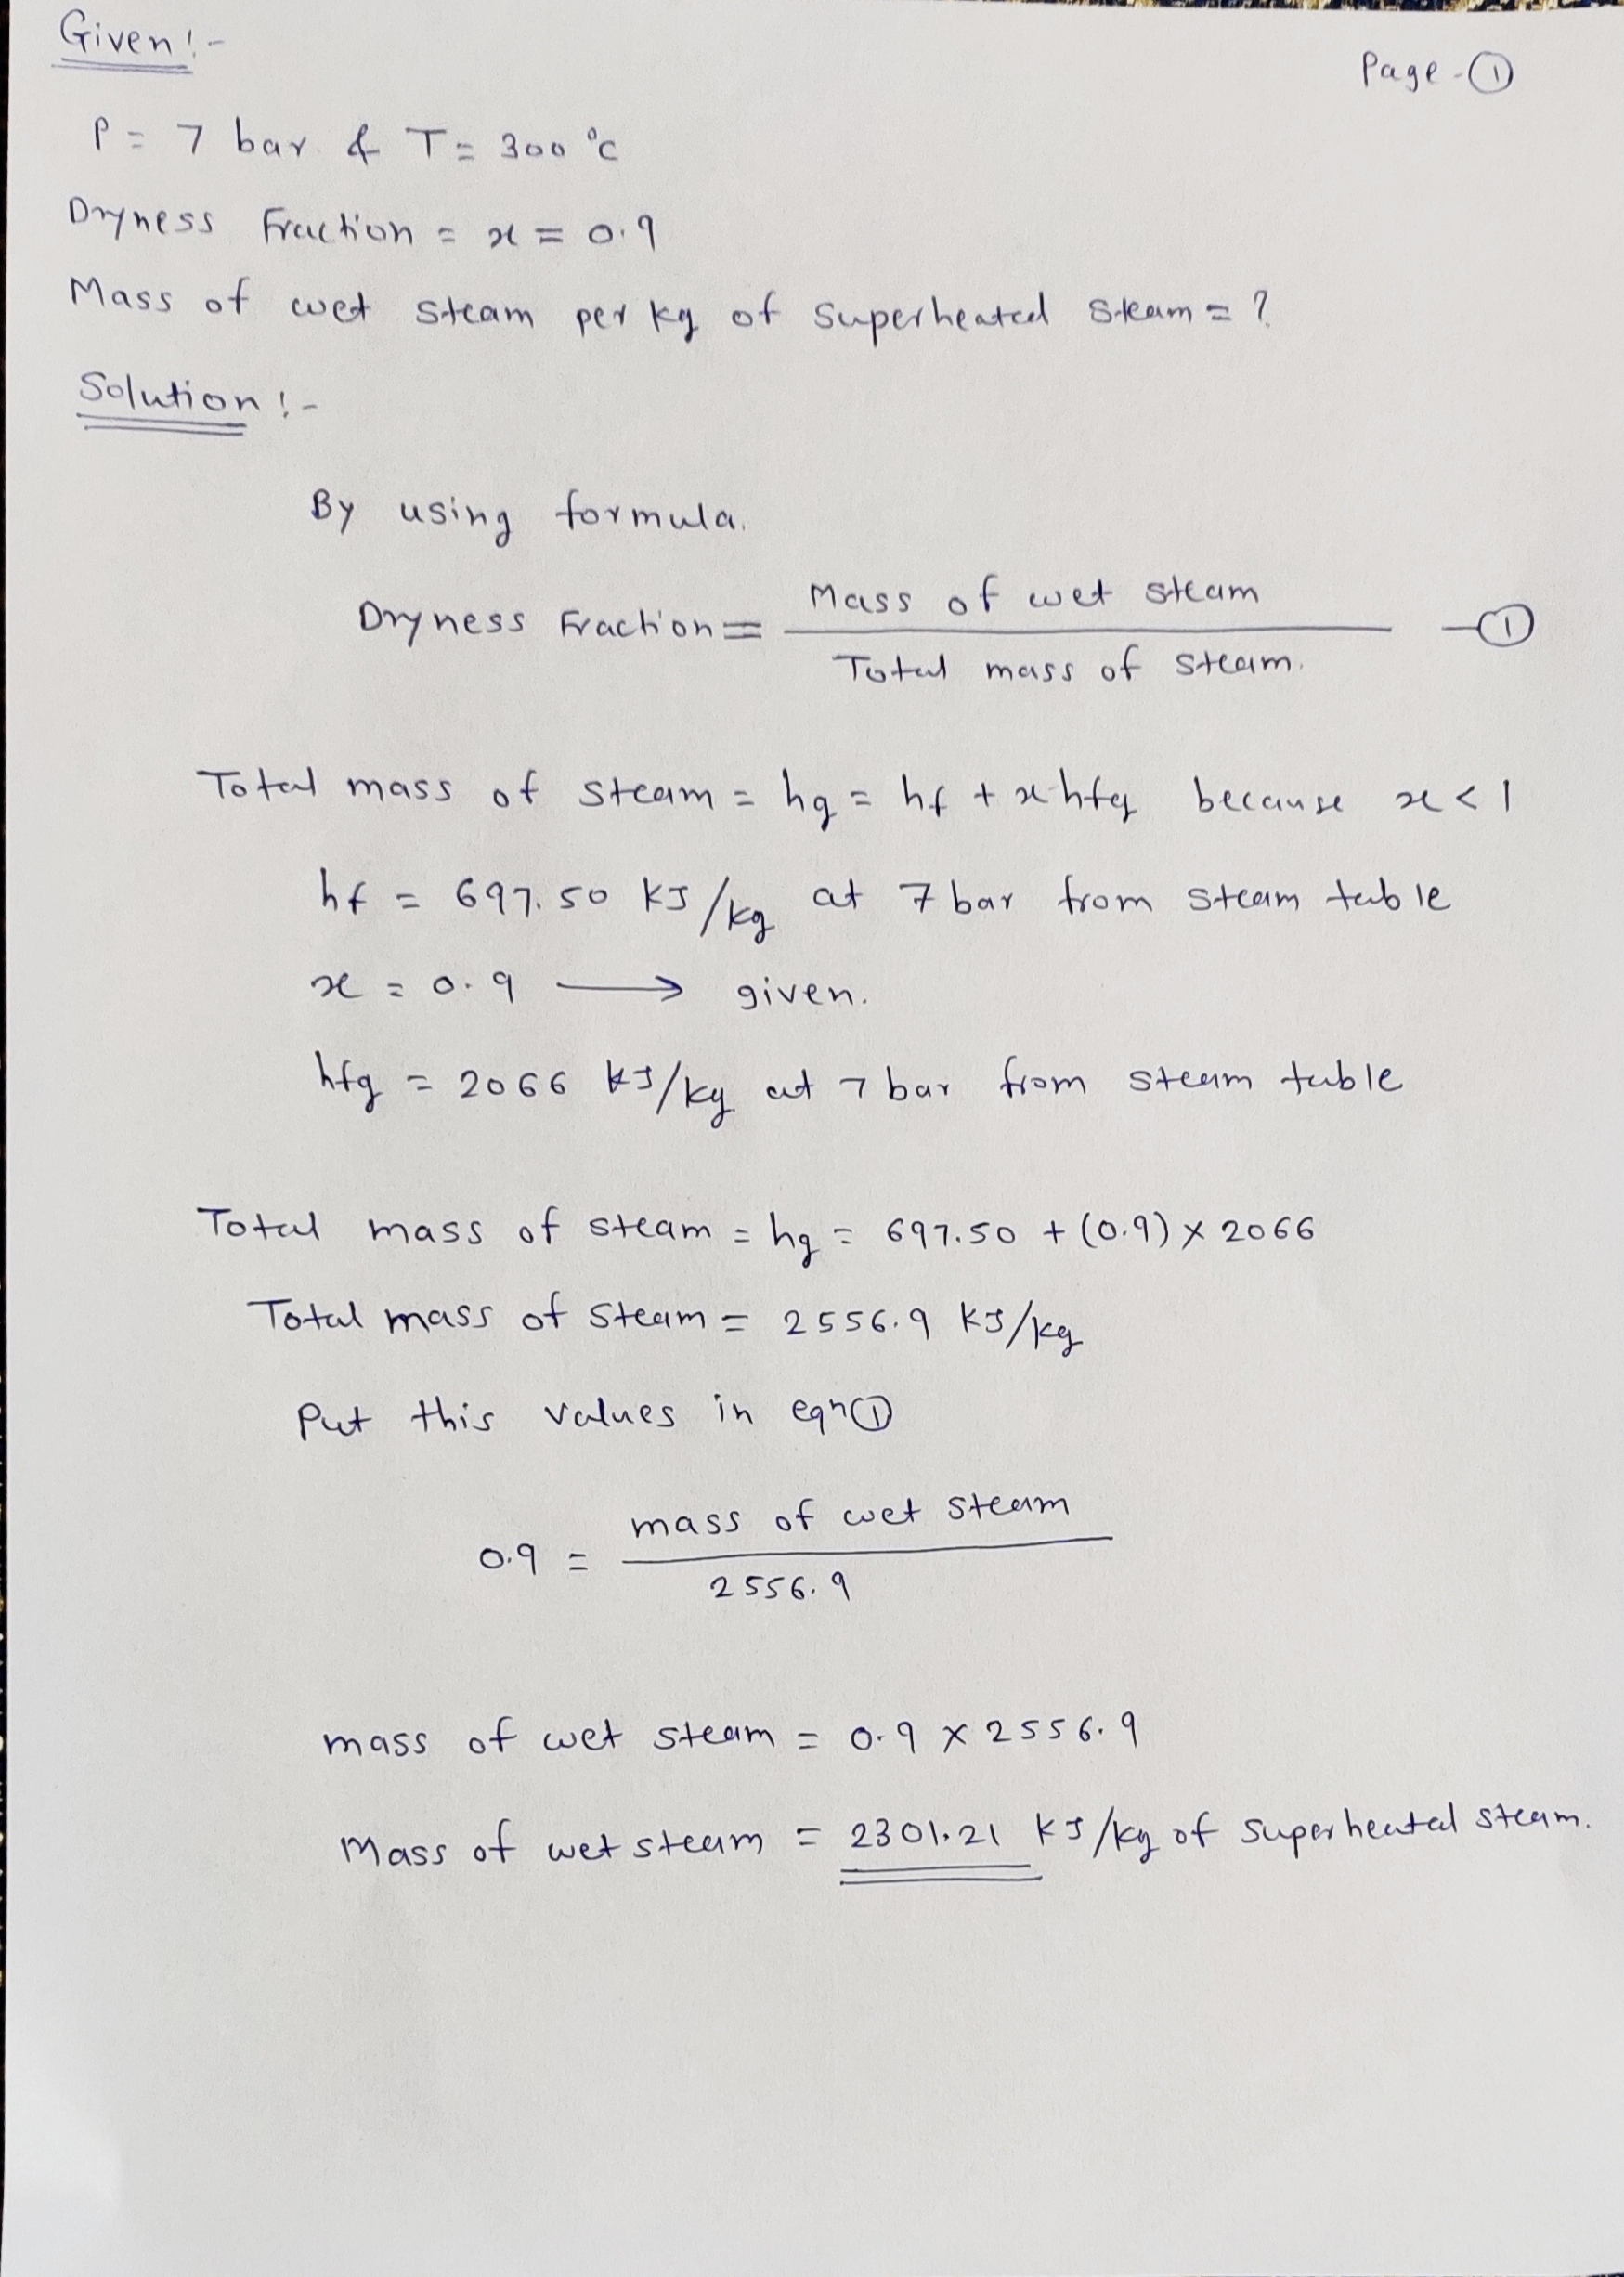 Given :-
Page - ①
P = 7 bar & T = 300 °C
Dryness Fraction = x = 0.9
Mass of wet steam per kg of superheated steam = ?
Solution :-
By using formula.
Dryness Fraction = Mass of wet steam / Total mass of steam. — ①
Total mass of steam = hg = hf + x hfg because x < 1
hf = 697.50 KJ/kg at 7 bar from steam table
x = 0.9 → given.
hfg = 2066 KJ/kg at 7 bar from steam table
Total mass of steam = hg = 697.50 + (0.9) × 2066
Total mass of steam = 2556.9 KJ/kg
Put this values in eqn ①
0.9 = mass of wet steam / 2556.9
mass of wet steam = 0.9 × 2556.9
Mass of wet steam = 2301.21 KJ/kg of superheated steam.